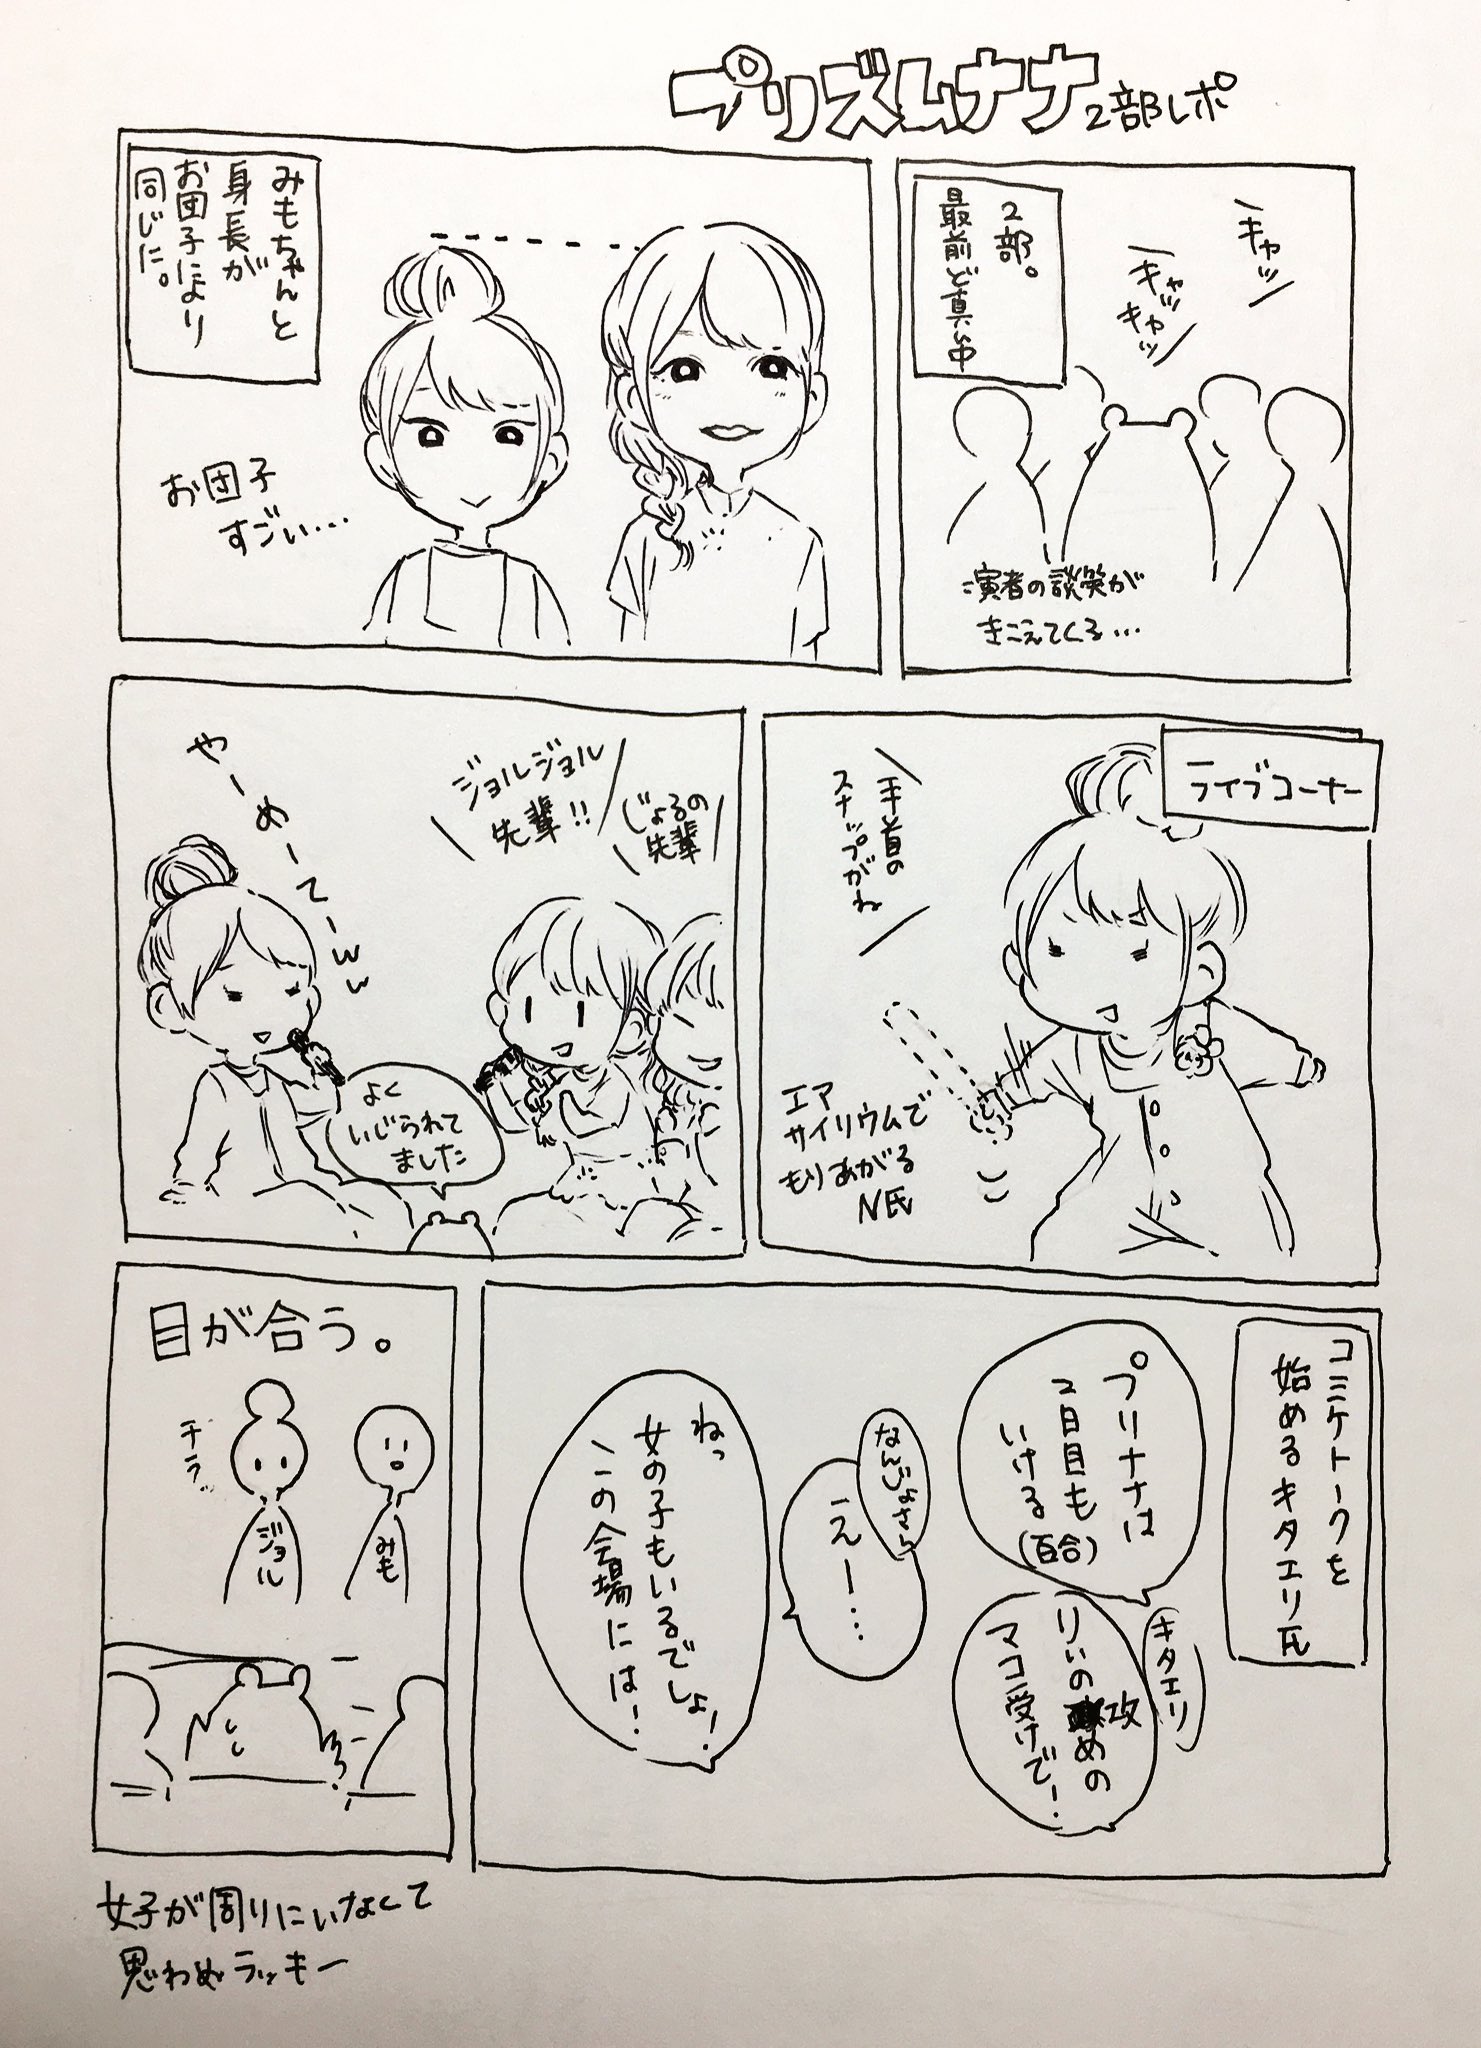 プリズムナナ2部レポ
2部。
最前ど真ん中
キャッ
キャッ
キャッ
演者の談笑が
きこえてくる…
みもちゃんと
身長が
お団子により
同じに。
お団子
すごい…
ライブコーナー
手首の
スナップがね
エア
サイリウムで
もりあがる
N氏
じょるの
先輩
ジョルジョル
先輩!!
やーめーてーww
よく
いじられて
ました
コミケトークを
始めるキタエリ氏
プリナナは
2日目も
いける
(百合)
キタエリ
りぃの攻めの
マコ受けで!
なんじょさん
えー…
ねっ
女の子もいるでしょ!
この会場には!
目が合う。
チラ
みも
ジョル
女子が周りにいなくて
思わぬラッキー